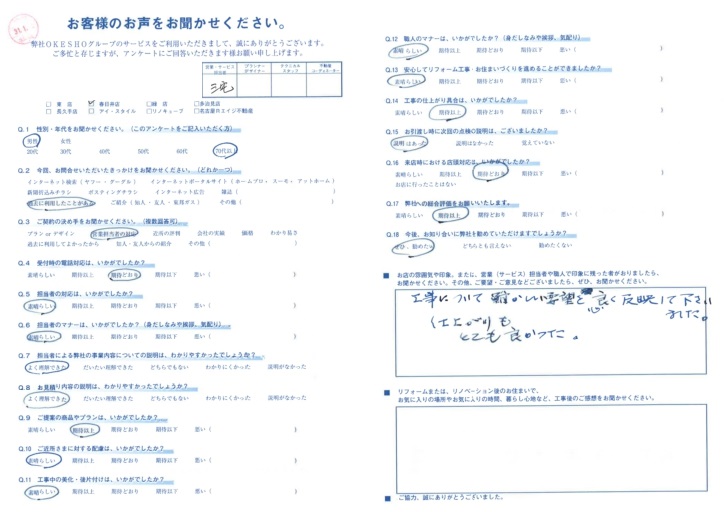 お客様のお声をお聞かせください。
弊社OKESHOグループのサービスをご利用いただきまして、誠にありがとうございます。
ご多忙と存じますが、アンケートにご回答いただきます様お願い申し上げます。
営業・サービス担当者 プランナーデザイナー テクニカルスタッフ 不動産コーディネーター
三宅
□ 本店 □ 春日井店 □ 緑店 □多治見店
□ 長久手店 □ アイ・スタイル □リノキューブ □名古屋有エイジ不動産
Q.1 性別・年代をお聞かせください。(このアンケートをご記入いただく方)
男性 女性
20代 30代 40代 50代 60代 70代以上
Q.2 今回、お問合せいただいたきっかけをお聞かせください。(どれか一つ)
インターネット検索(ヤフー・グーグル) インターネットポータルサイト(ホームプロ・スーモ・アットホーム)
新聞折込みチラシ ポスティングチラシ インターネット広告 雑誌( )
過去に利用したことがある ご紹介(知人・友人・東邦ガス) その他( )
Q.3 ご契約の決め手をお聞かせください。(複数回答可)
プラン or デザイン 営業担当者の対応 近所の評判 会社の実績 価格 わかり易さ
過去に利用してよかったから 知人・友人からの紹介 その他( )
Q.4 受付時の電話対応は、いかがでしたか?
素晴らしい 期待以上 期待どおり 期待以下 悪い( )
Q.5 担当者の対応は、いかがでしたか?
素晴らしい 期待以上 期待どおり 期待以下 悪い( )
Q.6 担当者のマナーは、いかがでしたか?(身だしなみや挨拶、気配り)
素晴らしい 期待以上 期待どおり 期待以下 悪い( )
Q.7 担当者による弊社の事業内容についての説明は、わかりやすかったでしょうか?
よく理解できた だいたい理解できた どちらでもない わかりにくかった 説明がなかった
Q.8 お見積り内容の説明は、わかりやすかったでしょうか?
よく理解できた だいたい理解できた どちらでもない わかりにくかった 説明がなかった
Q.9 ご提案の商品やプランは、いかがでしたか?
素晴らしい 期待以上 期待どおり 期待以下 悪い( )
Q.10 ご近所さまに対する配慮は、いかがでしたか?
素晴らしい 期待以上 期待どおり 期待以下 悪い( )
Q.11 工事中の美化・後片付けは、いかがでしたか?
素晴らしい 期待以上 期待どおり 期待以下 悪い( )
Q.12 職人のマナーは、いかがでしたか?(身だしなみや挨拶、気配り)
素晴らしい 期待以上 期待どおり 期待以下 悪い( )
Q.13 安心してリフォーム工事・お住まいづくりを進めることができましたか?
素晴らしい 期待以上 期待どおり 期待以下 悪い( )
Q.14 工事の仕上がり具合は、いかがでしたか?
素晴らしい 期待以上 期待どおり 期待以下 悪い( )
Q.15 お引渡し時に次回の点検の説明は、ございましたか?
説明はあった 説明はなかった 覚えていない
Q.16 来店時における店頭対応は、いかがでしたか?
素晴らしい 期待以上 期待どおり 期待以下 悪い( )
お店に行ったことはない
Q.17 弊社への総合評価をお願いいたします。
素晴らしい 期待以上 期待どおり 期待以下 悪い( )
Q.18 今後、お知り合いに弊社を勧めていただけますでしょうか?
ぜひ、勧めたい どちらとも言えない 勧めたくない
■ お店の雰囲気や印象、または、営業(サービス)担当者や職人で印象に残った者がおりましたら、
お聞かせください。その他、ご要望・ご意見などございましたら、ぜひ、お聞かせください。
工事について 細かしい要望を 良く反映して下さい
ました。
仕上がりも
とても良かった。
■ リフォームまたは、リノベーション後のお住まいで、
お気に入りの場所やお気に入りの時間、暮らし心地など、工事後のご感想をお聞かせください。
■ ご協力、誠にありがとうございました。